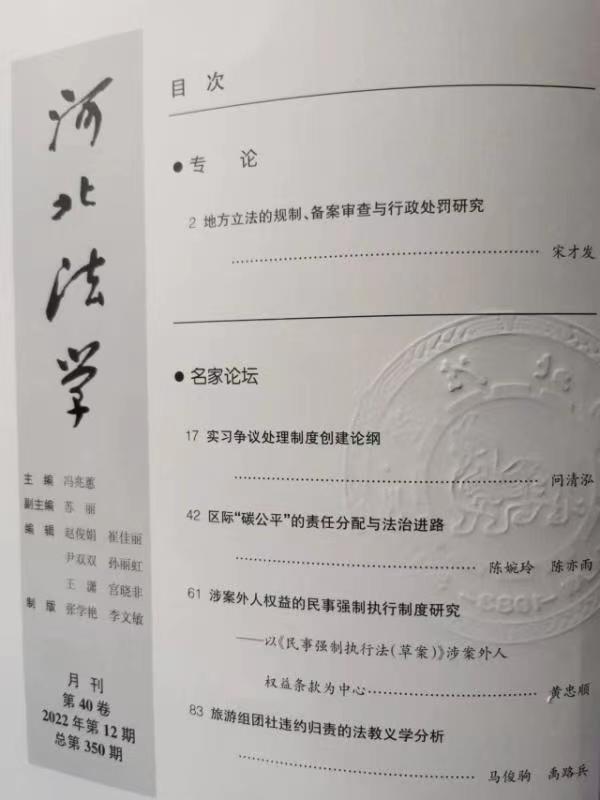 河北法学
主编 冯兆蕙
副主编 苏丽
编辑 赵俊娟 崔佳丽
尹双双 孙丽虹
王潇 宫晓非
制版 张学艳 李文敏
月刊
第40卷
2022年第12期
总第350期
目次
● 专论
2 地方立法的规制、备案审查与行政处罚研究
宋才发
● 名家论坛
17 实习争议处理制度创建论纲
问清泓
42 区际“碳公平”的责任分配与法治进路
陈婉玲 陈亦雨
61 涉案外人权益的民事强制执行制度研究
——以《民事强制执行法(草案)》涉案外人
权益条款为中心 黄忠顺
83 旅游组团社违约归责的法教义学分析
马俊驹 禹路兵